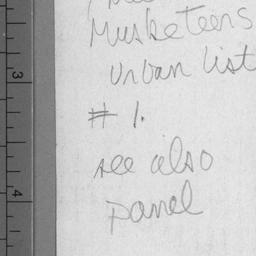 Musketeers
Urban list
# 1.
see also
panel
3
4